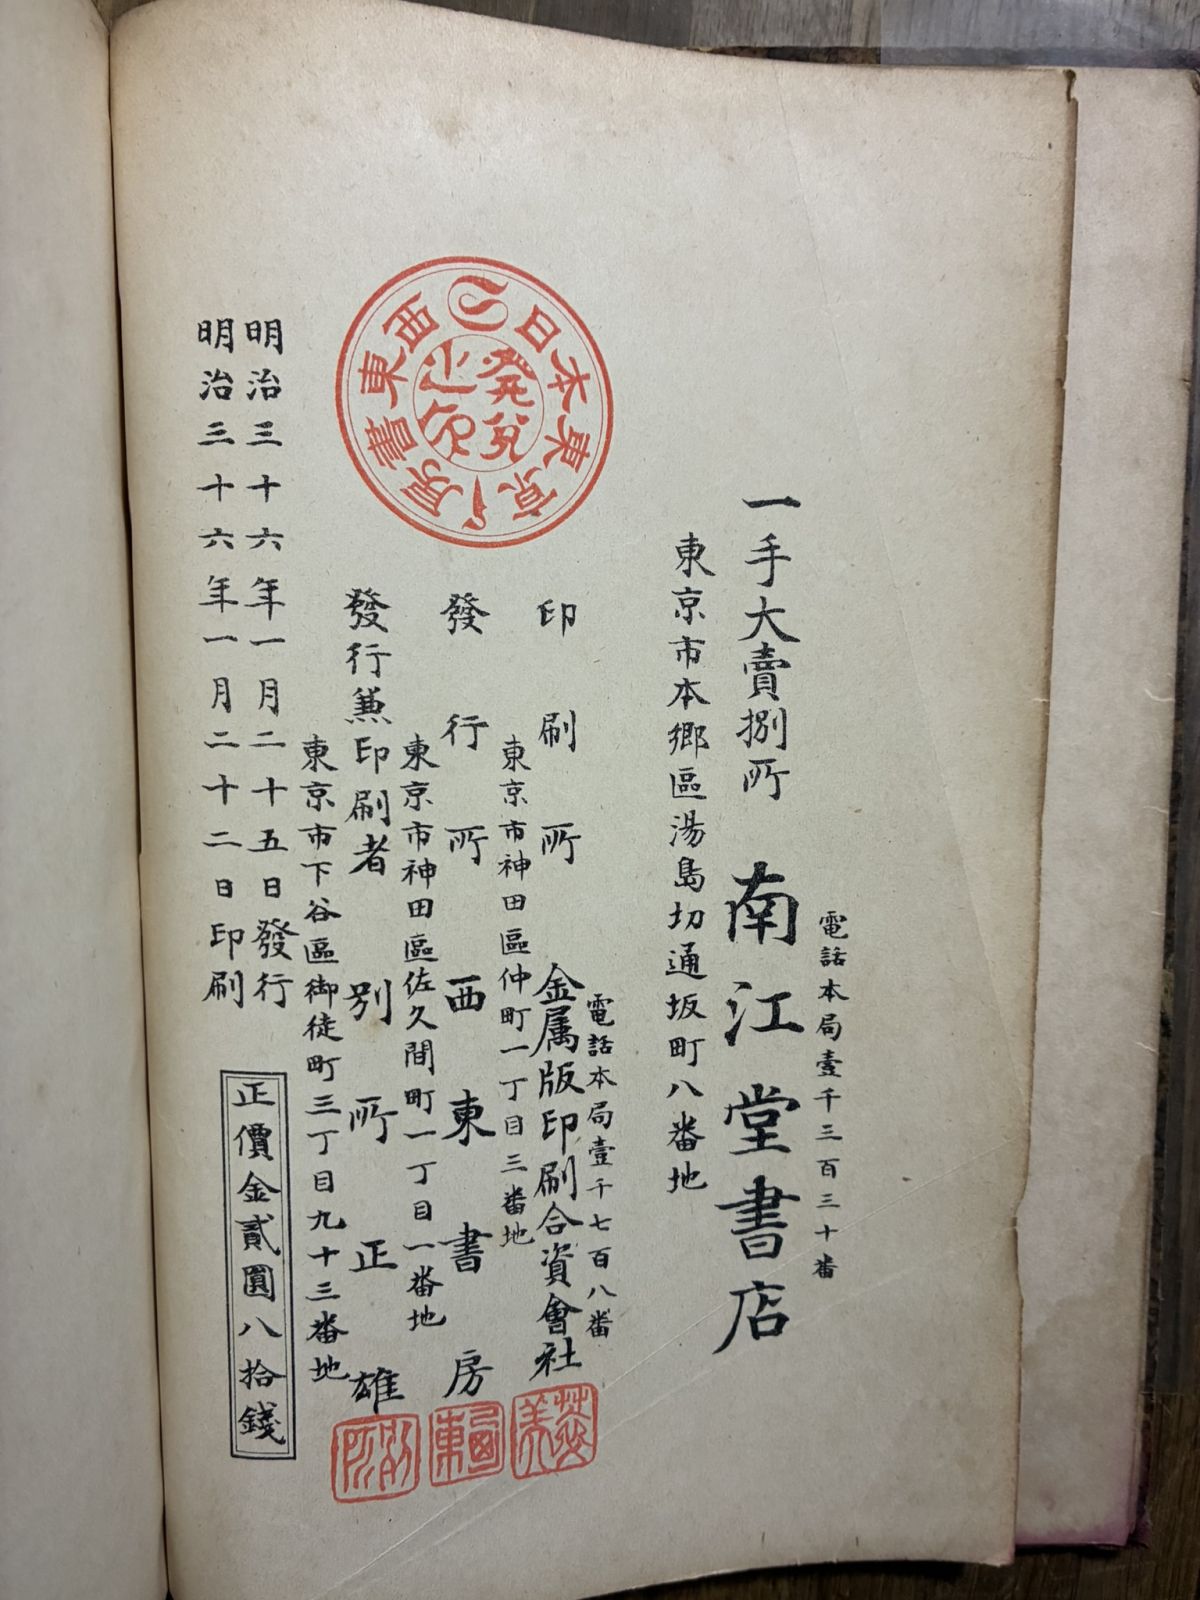 電話本局壹千三百三十番
一手大賣捌所 南江堂書店
東京市本鄉區湯島切通坂町八番地
電話本局壹千七百八番
印刷所 金属版印刷合資會社
東京市神田區仲町一丁目三番地
發行所 西東書房
東京市神田區佐久間町一丁目一番地
發行兼印刷者 別所正雄
東京市下谷區御徒町三丁目九十三番地
明治三十六年一月二十五日發行
明治三十六年一月二十二日印刷
正價金貳圓八拾錢
日本東京
西東書房
發兌之印
西東
別所